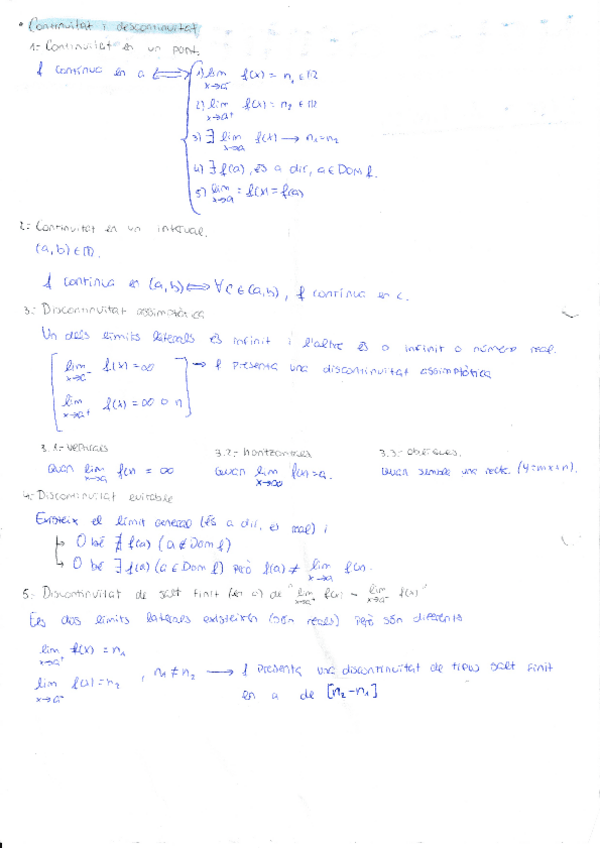 • Continuitat i descontinuitat
1.- Continuitat en un punt.
f contínua en a ⟺ { 1) lim x→a⁻ f(x) = n₁ ∈ ℝ
2) lim x→a⁺ f(x) = n₂ ∈ ℝ
3) ∃ lim x→a f(x) → n₁=n₂
4) ∃ f(a), és a dir, a ∈ Dom f.
5) lim x→a = f(x) = f(a)
2.- Continuitat en un interval.
(a,b) ∈ ℝ.
f contínua en (a,b) ⟺ ∀ c ∈ (a,b), f contínua en c.
3.- Discontinuitat assimptòtica
Un dels límits laterals és infinit i l'altre és o infinit o número real.
[ lim x→a⁻ f(x) = ∞
lim x→a⁺ f(x) = ∞ o n ] → f presenta una discontinuitat assimptòtica
3.1.- verticals 3.2.- horitzontals 3.3.- obliqües.
Quan lim x→a f(x) = ∞ Quan lim x→∞ f(x) = a. Quan sembla una recta. (y=mx+n).
4.- Discontinuitat evitable
Existeix el límit general (és a dir, és real) i
↳ O bé ∄ f(a) (a ∉ Dom f)
↳ O bé ∃ f(a) (a ∈ Dom f) però f(a) ≠ lim x→a f(x).
5.- Discontinuitat de salt finit (en a) de "lim x→a⁺ f(x) - lim x→a⁻ f(x)"
Els dos límits laterals existeixen (són reals) però són diferents
lim x→a⁺ f(x) = n₁
lim x→a⁻ f(x) = n₂ , n₁ ≠ n₂ → f presenta una discontinuitat de tipus salt finit
en a de [n₂-n₁]